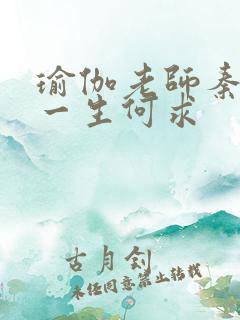 瑜伽老師秦
一生何求
古月釗
未经同意禁止转载